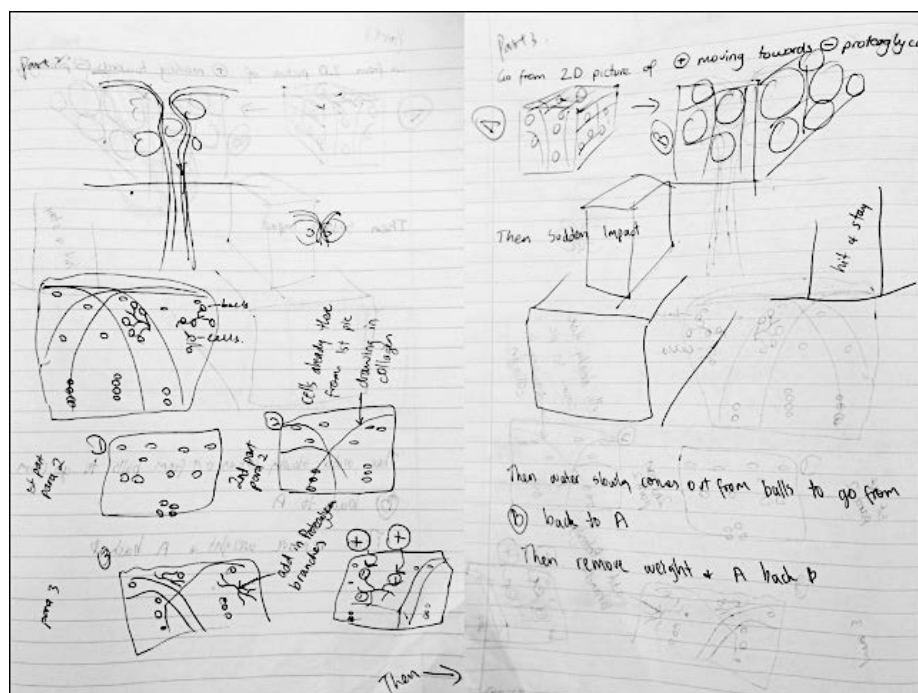 Part 2
balls
cells.
cells already there
from 1st pic
drawing in
collagen
1st part
para 2
1
2nd part
para 2
2
3
para 3
add in
branches
+ +
Then →
Part 3.
Go from 2D picture of ⊕ moving towards ⊖
A → B
Then Sudden Impact
hit & stay
Then water slowly comes out from balls to go from
B back to A
Then remove weight & A back